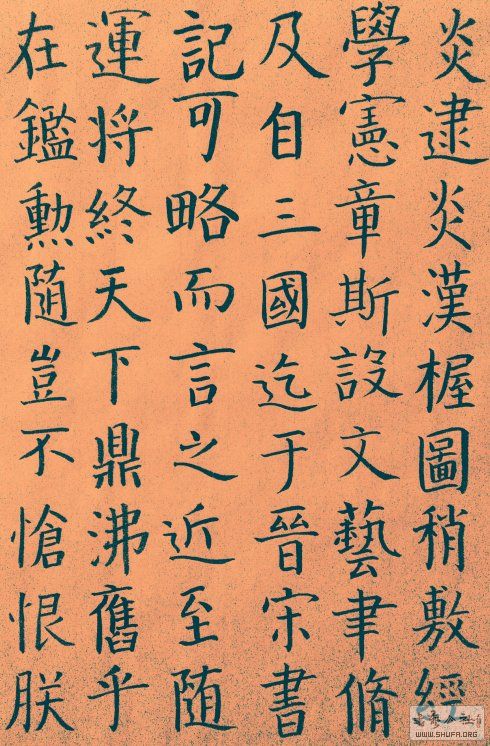 炎逮炎漢握圖稍敷經
學憲章斯設文藝聿脩
及自三國迄于晉宋書
記可略而言之近至随
運将終天下鼎沸舊乎
在鑑勳随豈不愴恨朕
WWW.SHUFA.ORG